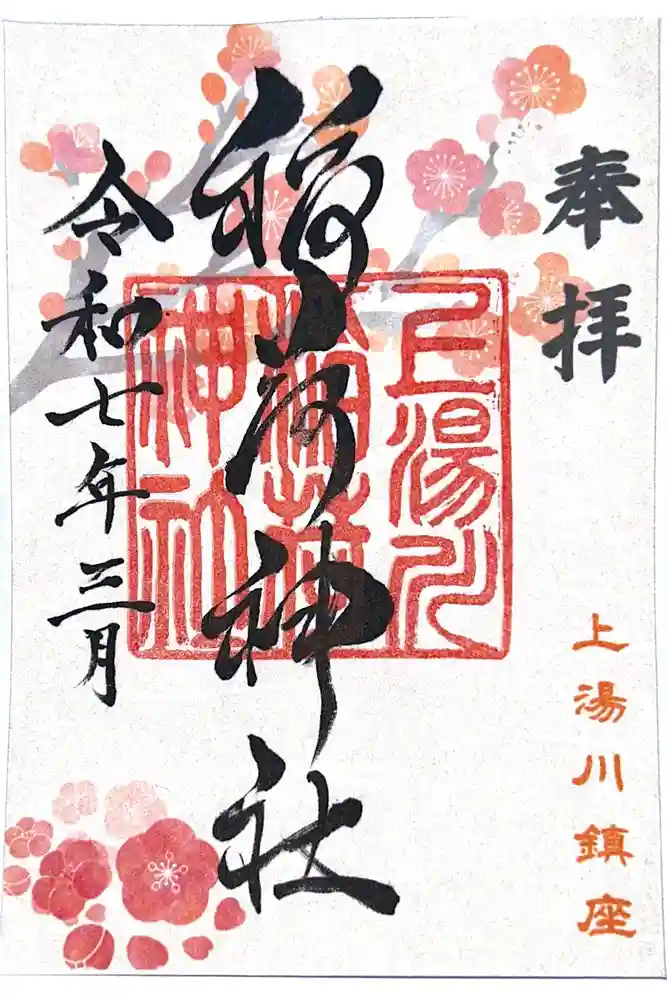 奉拝
上湯川鎮座
上湯川
稲荷
神社
稲荷神社
令和七年三月